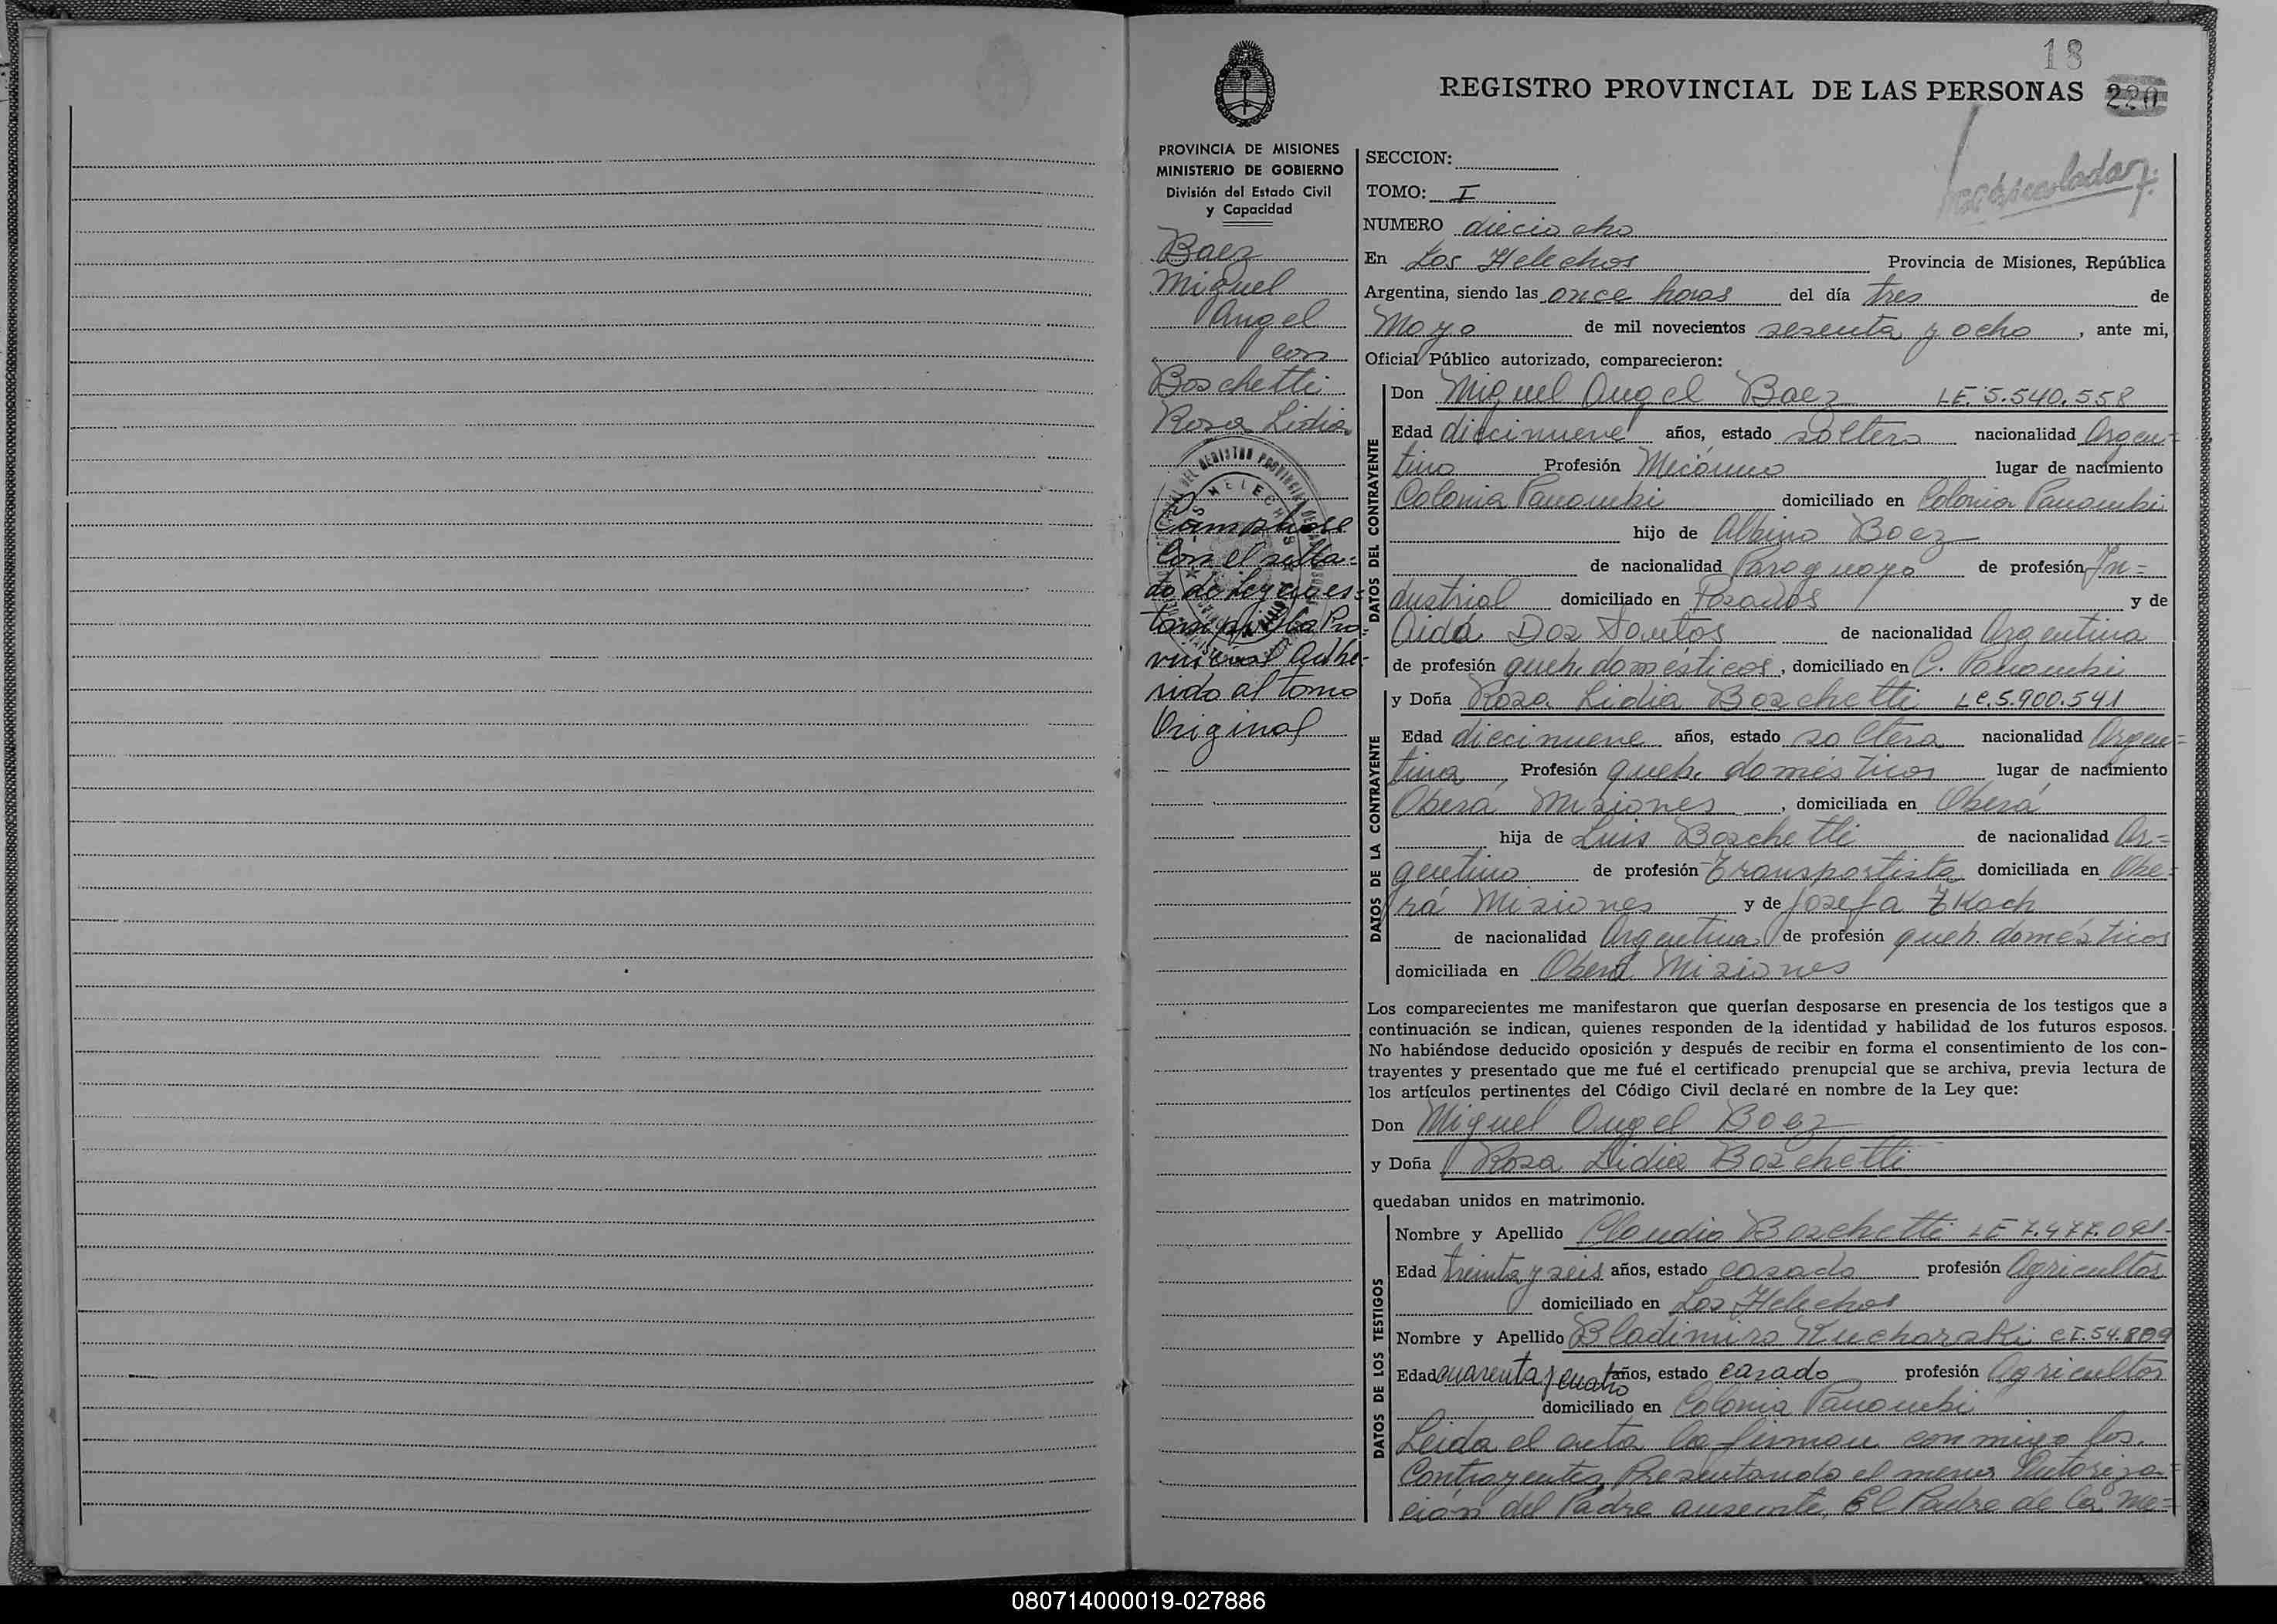 18
REGISTRO PROVINCIAL DE LAS PERSONAS 220
PROVINCIA DE MISIONES
MINISTERIO DE GOBIERNO
División del Estado Civil
y Capacidad
Baez
Miguel
Angel
con
Boschetti
Rosa Lidia
Con el sella=
do de Ley en es=
vincial Adhe=
rido al tomo
Original
SECCION:
TOMO: I
NUMERO dieciocho
En Los Helechos Provincia de Misiones, República
Argentina, siendo las once horas del día tres de
Mayo de mil novecientos sesenta y ocho, ante mi,
Oficial Público autorizado, comparecieron:
DATOS DEL CONTRAYENTE
Don Miguel Angel Baez LE. 5.540.558
Edad diecinueve años, estado soltero nacionalidad Argen=
tino Profesión Mecánico lugar de nacimiento
Colonia Panambi domiciliado en Colonia Panambi
hijo de Albino Baez
de nacionalidad Paraguayo de profesión In=
dustrial domiciliado en Posadas y de
Aida Dos Santos de nacionalidad Argentina
de profesión queh. domésticos, domiciliado en C. Panambi
DATOS DE LA CONTRAYENTE
y Doña Rosa Lidia Boschetti LC. 5.900.541
Edad diecinueve años, estado soltera nacionalidad Argen=
tina, Profesión queh. domésticos lugar de nacimiento
Oberá Misiones, domiciliada en Oberá
hija de Luis Boschetti de nacionalidad Ar=
gentino de profesión Transportista domiciliada en Obe=
rá Misiones y de Josefa
de nacionalidad Argentina de profesión queh. domésticos
domiciliada en Oberá Misiones
Los comparecientes me manifestaron que querían desposarse en presencia de los testigos que a
continuación se indican, quienes responden de la identidad y habilidad de los futuros esposos.
No habiéndose deducido oposición y después de recibir en forma el consentimiento de los con-
trayentes y presentado que me fué el certificado prenupcial que se archiva, previa lectura de
los artículos pertinentes del Código Civil declaré en nombre de la Ley que:
Don Miguel Angel Baez
y Doña Rosa Lidia Boschetti
quedaban unidos en matrimonio.
DATOS DE LOS TESTIGOS
Nombre y Apellido Claudio Boschetti LE 7.477.091
Edad treinta y seis años, estado casado profesión Agricultor
domiciliado en Los Helechos
Nombre y Apellido Bladimiro Kucharski CI. 54.809
Edad cuarenta y cuatro años, estado casado profesión Agricultor
domiciliado en Colonia Panambi
Leida el acta la firman conmigo los
Contrayentes Presentando el menor Autoriza=
ción del Padre ausente, El Padre de la me=
080714000019-027886